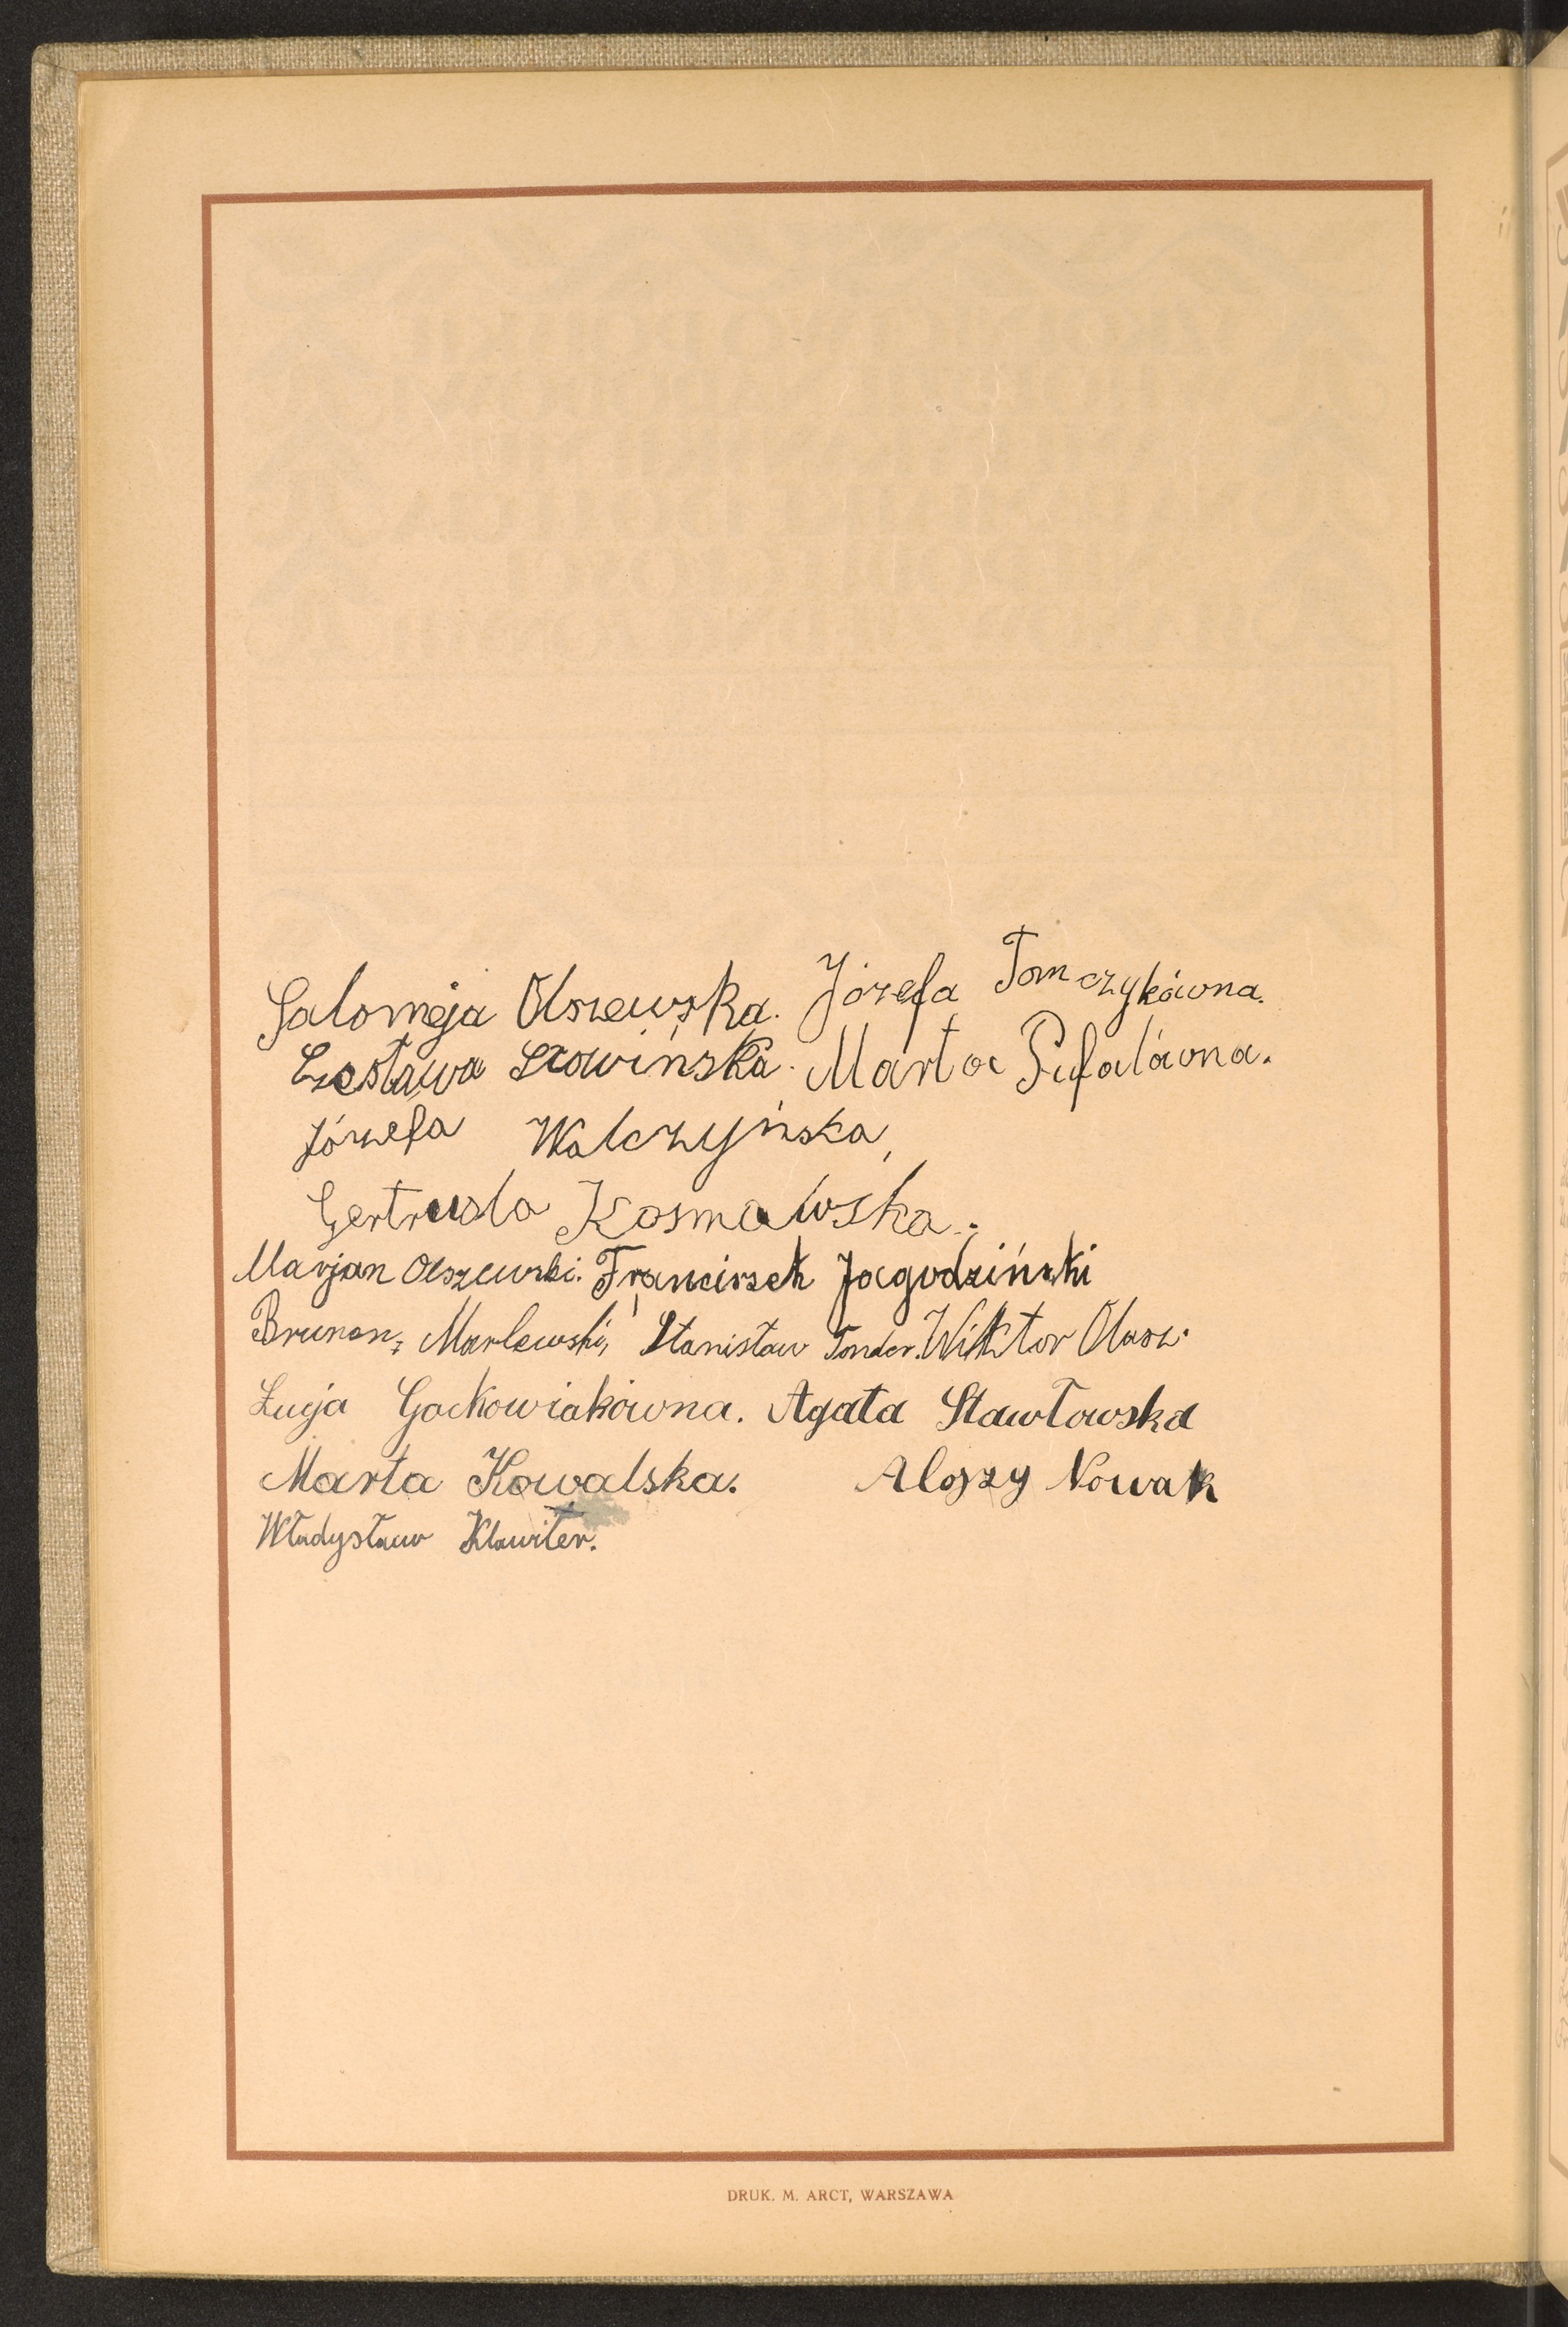 Salomeja Olszewska. Józefa Tomczykówna.
Czesława Szowińska. Marta Pufalówna.
Józefa Walczyńska,
Gertruda Kosmalwska.
Marjan Olszewski. Franciszek Jagodziński
Brunon, Marlewski, Stanisław Tonder. Wiktor Olusz.
Łucja Gackowiakówna. Agata Stawłowska
Marta Kowalska. Alojzy Nowak
Władysław Klawiter.
DRUK. M. ARCT, WARSZAWA